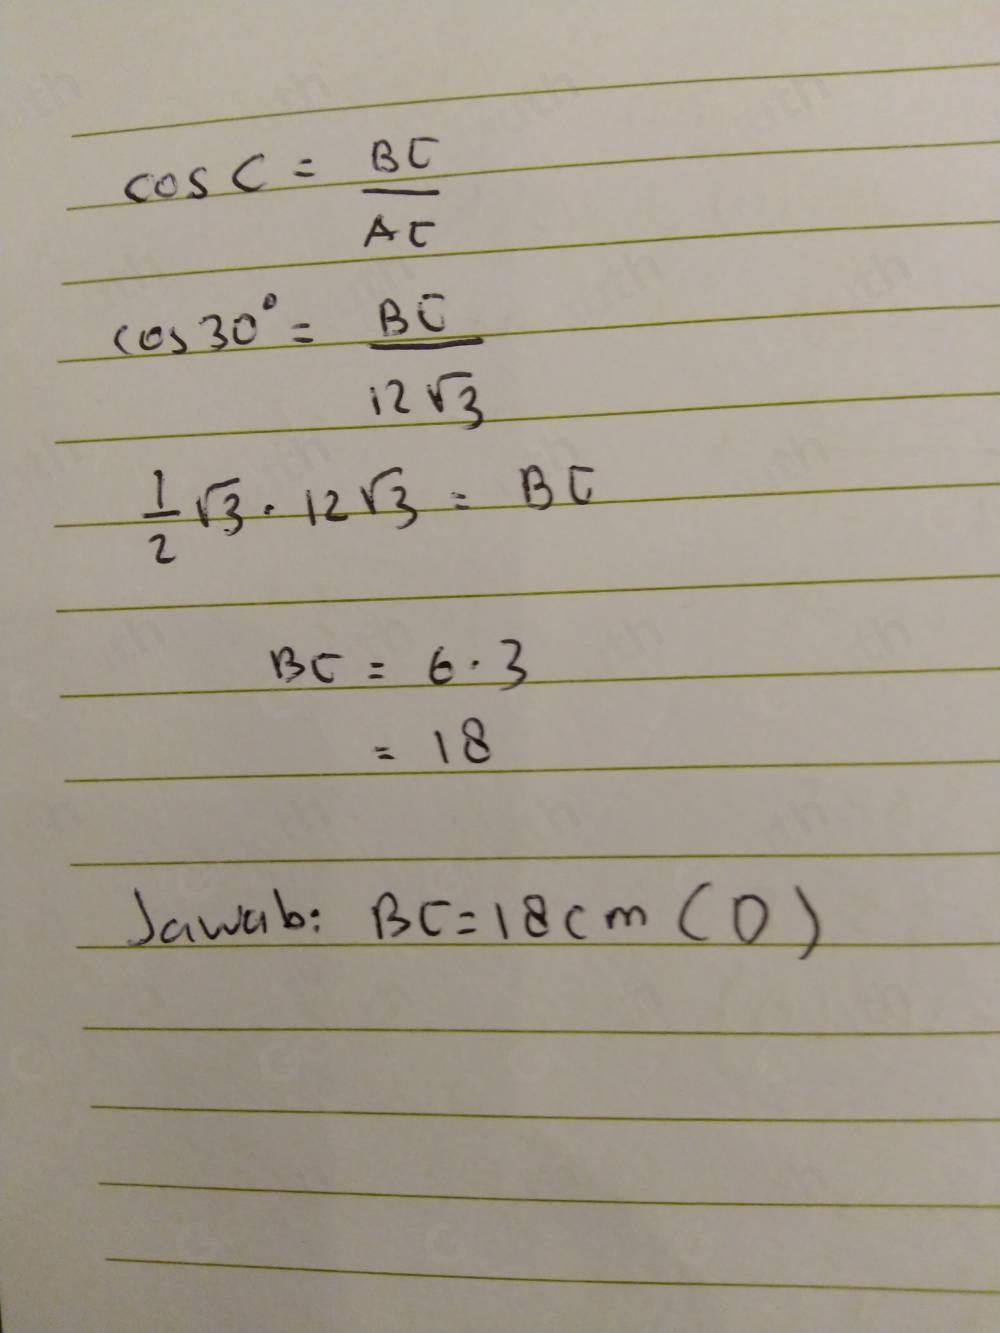 cos C = BC / AC
cos 30° = BC / 12√3
1/2 √3 . 12√3 = BC
BC = 6 . 3
= 18
Jawab: BC = 18 cm (D)